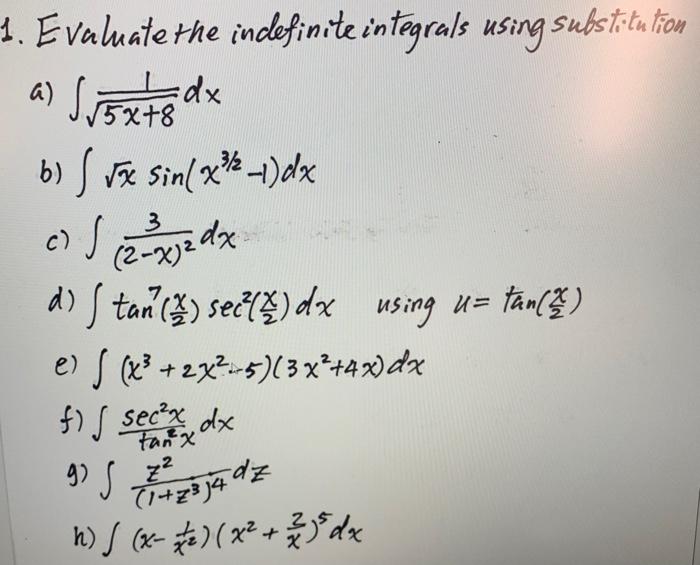 1. Evaluate the indefinite integrals using substitution
a) ∫ 1/√(5x+8) dx
b) ∫ √x sin(x^(3/2) -1)dx
c) ∫ 3/(2-x)² dx
d) ∫ tan⁷(x/2) sec²(x/2) dx using u= tan(x/2)
e) ∫ (x³ +2x²-5)(3x²+4x)dx
f) ∫ sec²x/tan²x dx
g) ∫ z²/(1+z³)⁴ dz
h) ∫ (x- 1/x²)(x² + 2/x)⁵dx